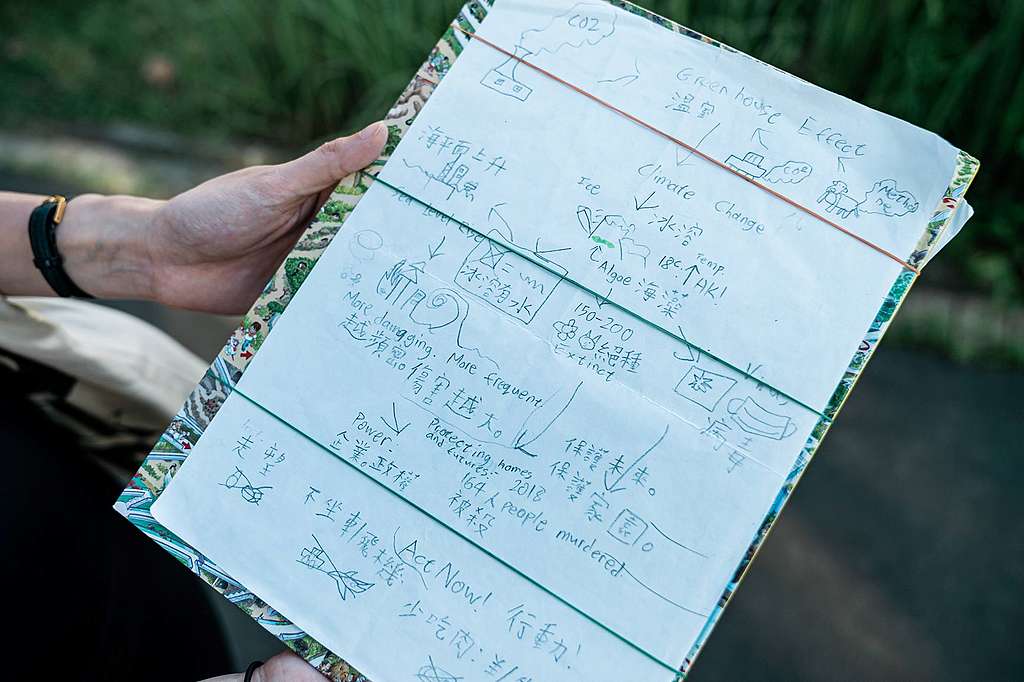 CO2
Greenhouse Effect
温室
CO2
Methane
Climate Change
海平面上升
Sea Level
Ice
冰溶
Algae 海藻
18c.↑ Temp.
AK!
冰溶有水
150-200
絕種
Extinct
Virus
病毒
More damaging. More frequent
越頻密。傷害越大。
Power:
企業。政權
Protecting homes
and futures: 2018
164 人 people murdered
被殺
保護未來。
保護家園。
走塑
不坐車/飛機
Act Now! 行動!
少吃肉: